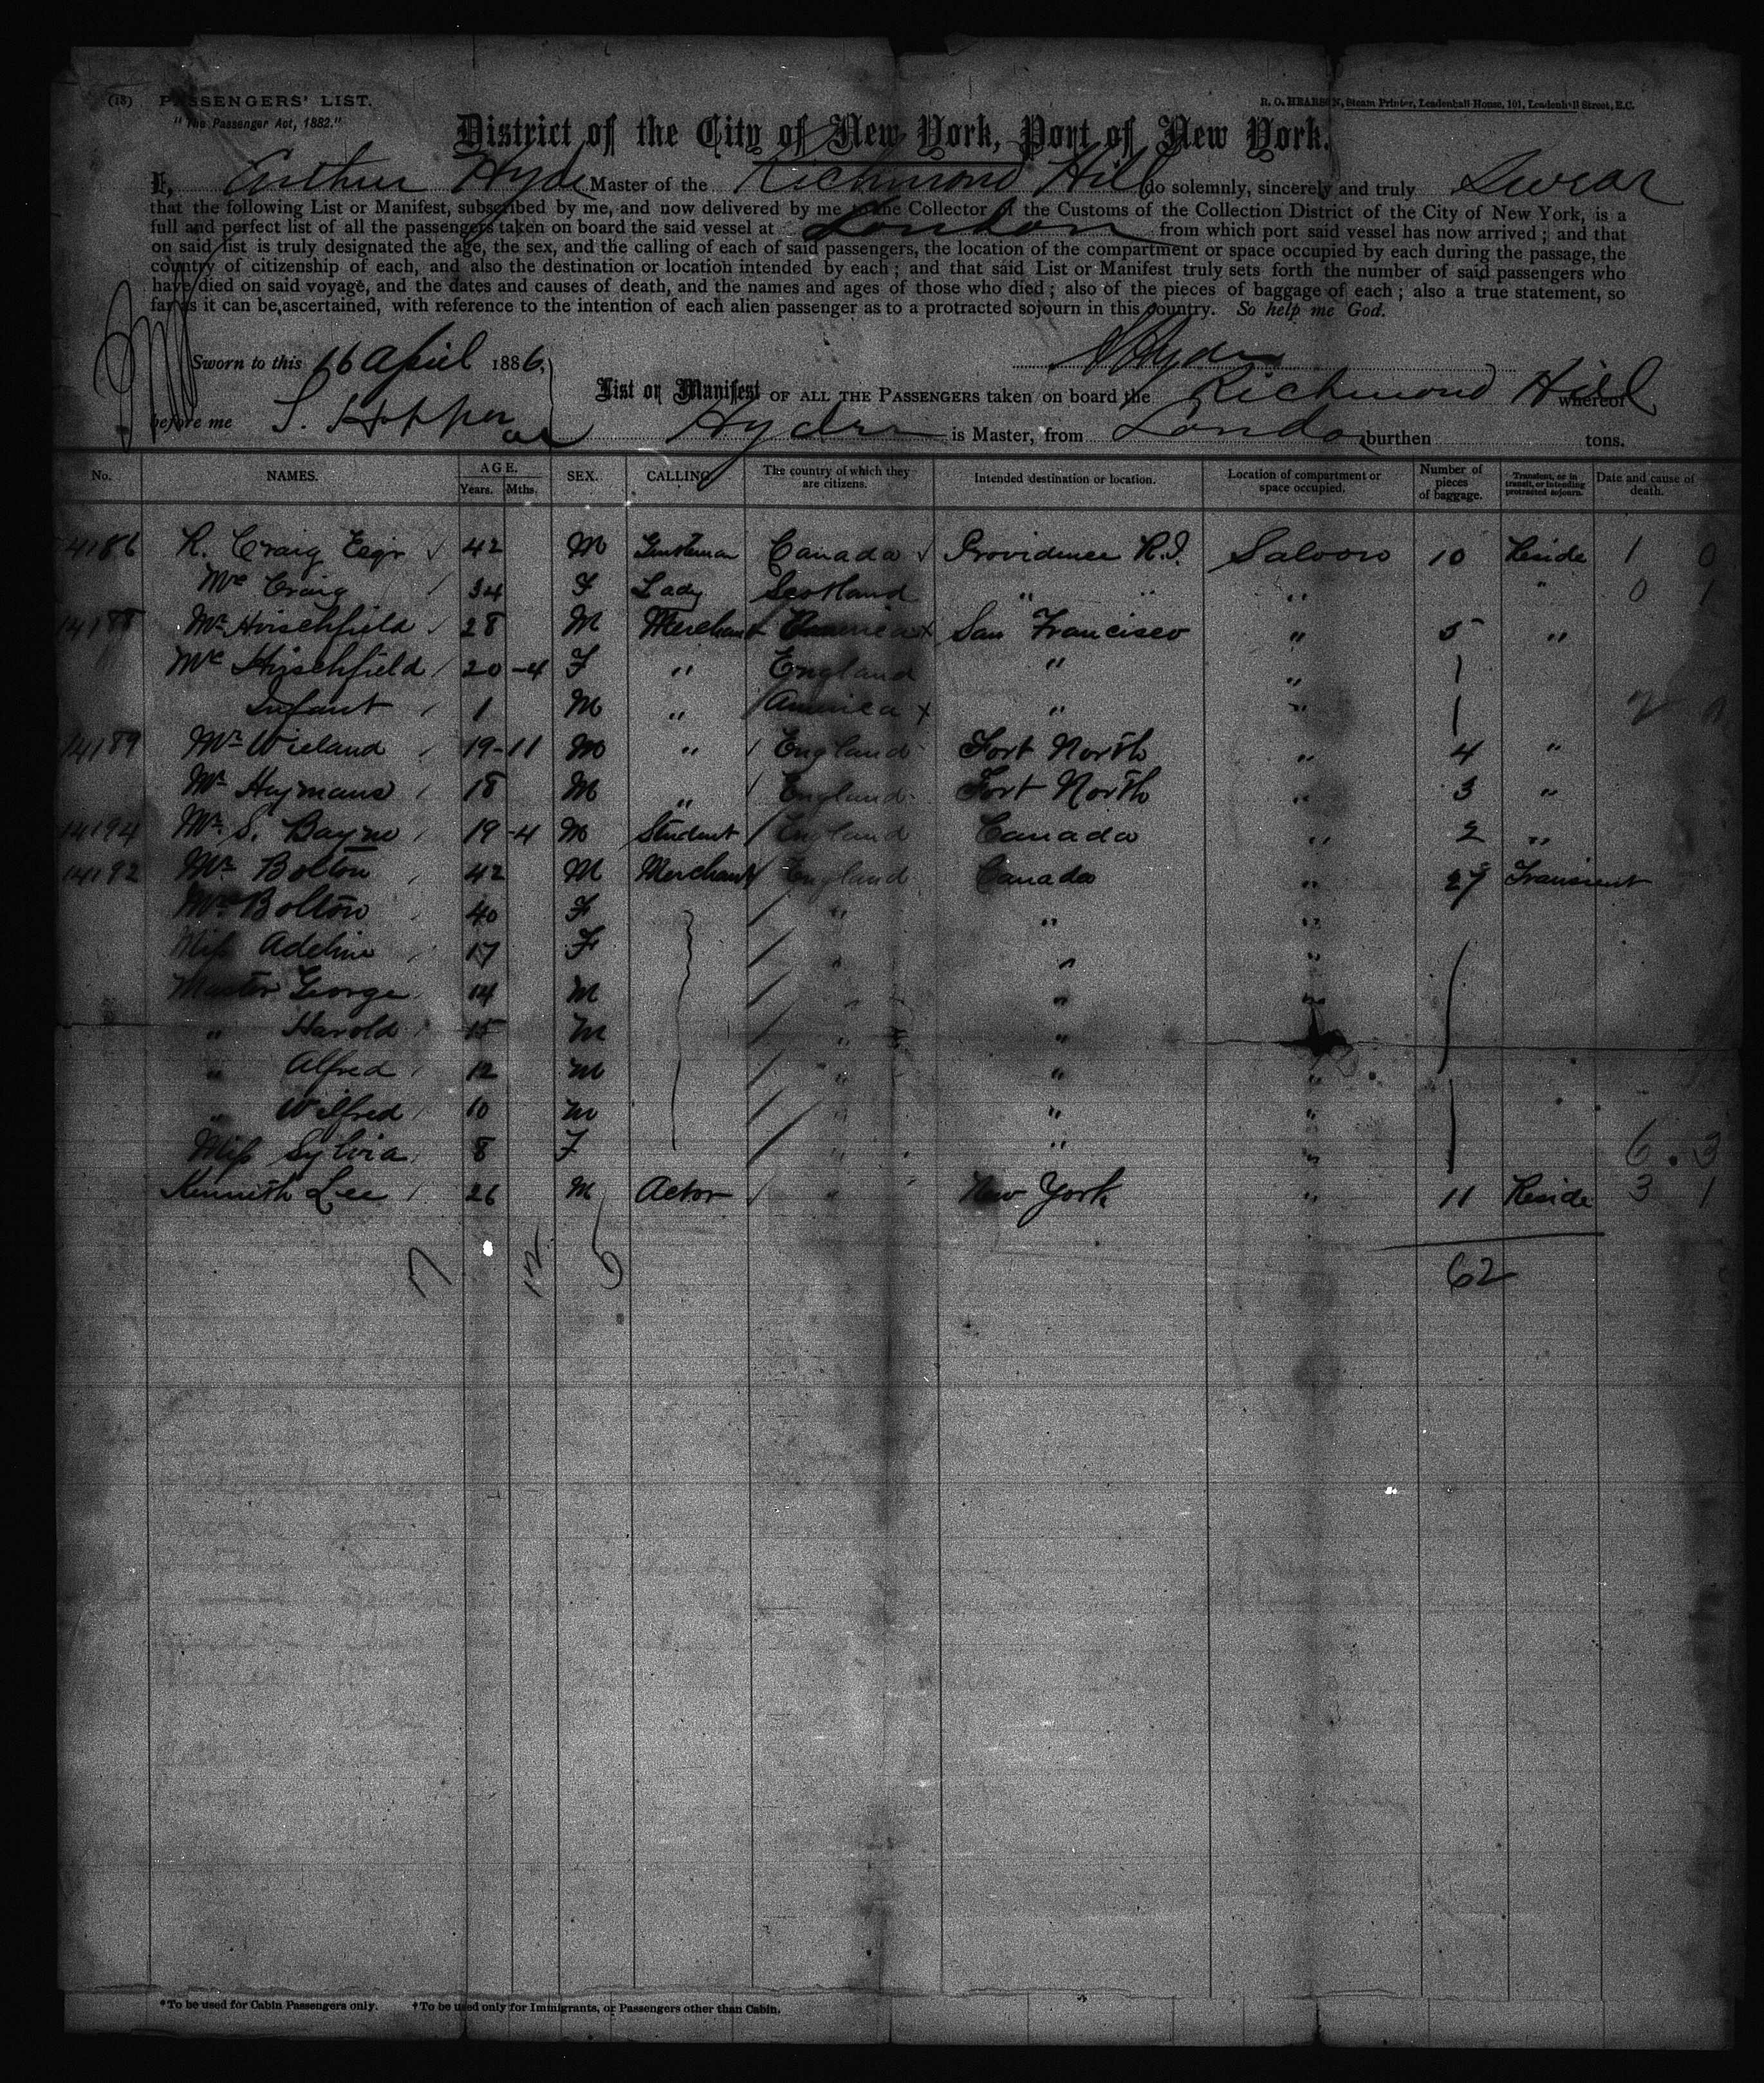 (18) PASSENGERS' LIST.
"The Passenger Act, 1882."
R. O. HEARSON, Steam Printer, Leadenhall House, 101, Leadenhall Street, E.C.
District of the City of New York, Port of New York.
I, Arthur Hyde Master of the Richmond Hill do solemnly, sincerely and truly Swear
that the following List or Manifest, subscribed by me, and now delivered by me to the Collector of the Customs of the Collection District of the City of New York, is a
full and perfect list of all the passengers taken on board the said vessel at London from which port said vessel has now arrived; and that
on said list is truly designated the age, the sex, and the calling of each of said passengers, the location of the compartment or space occupied by each during the passage, the
country of citizenship of each, and also the destination or location intended by each; and that said List or Manifest truly sets forth the number of said passengers who
have died on said voyage, and the dates and causes of death, and the names and ages of those who died; also of the pieces of baggage of each; also a true statement, so
far as it can be ascertained, with reference to the intention of each alien passenger as to a protracted sojourn in this country. So help me God.
Sworn to this 16 April 1886,
before me S. Hopper
List or Manifest OF ALL THE PASSENGERS taken on board the Richmond Hill whereof
is Master, from London burthen tons.
No. NAMES. AGE. Years. Mths. SEX. CALLING. The country of which they are citizens. Intended destination or location. Location of compartment or space occupied. Number of pieces of baggage. Transient, or in transit, or intending protracted sojourn. Date and cause of death.
14186 R. Craig Esqr 42 M Gentleman Canada Providence R.I. Saloon 10 Reside 1 0
Mrs Craig 34 F Lady Scotland " " " " 0 1
14188 Mr Hirschfield 28 M Merchant America San Francisco " 5 "
Mrs Hirschfield 20-4 F " England " " 1
Infant 1 M " America " " 1 2
14189 Mr Wieland 19-11 M " England Fort North " 4 "
Mr Heymans 18 M " England Fort North " 3 "
14194 Mr S. Bayne 19-4 M Student England Canada " 2 "
14192 Mr Bolton 42 M Merchant England Canada " 27 Transient
Mrs Bolton 40 F " " "
Miss Adeline 17 F " " "
Master George 14 M " " "
" Harold 15 M " " "
" Alfred 12 M " " "
" Wilfred 10 M " " "
Miss Sylvia 8 F " " " 6 3
Kenneth Lee 26 M Actor " New York " 11 Reside 3 1
7 12 5 62
*To be used for Cabin Passengers only. †To be used only for Immigrants, or Passengers other than Cabin.